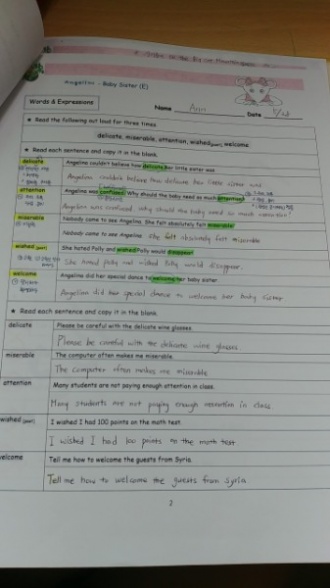 Angelina - Baby Sister (E)
Words & Expressions
Name Ann Date
★ Read the following out loud for three times.
delicate, miserable, attention, wished(past), welcome
★ Read each sentence and copy it in the blank.
delicate Angelina couldn't believe how delicate her little sister was.
Angelina couldn't believe how delicate her little sister was
attention Angelina was confused. Why should the baby need so much attention?
Angelina was confused. Why should the baby need so much attention?
miserable Nobody came to see Angelina. She felt absolutely miserable!
Nobody came to see Angelina. She felt absolutely felt miserable
wished (past) She hated Polly and wished Polly would disappear!
She hated polly and wished Polly would disappear.
welcome Angelina did her special dance to welcome her baby sister.
Angelina did her special dance to welcome her baby sister
★ Read each sentence and copy it in the blank.
delicate Please be careful with the delicate wine glasses.
Please be careful with the delicate wine glasses.
miserable The computer often makes me miserable.
The computer often makes me miserable
attention Many students are not paying enough attention in class.
Many students are not paying enough attention in class.
wished (past) I wished I had 100 points on the math test.
I wished I had 100 points on the math test
elcome Tell me how to welcome the guests from Syria.
Tell me how to welcome the guests from Syria
2